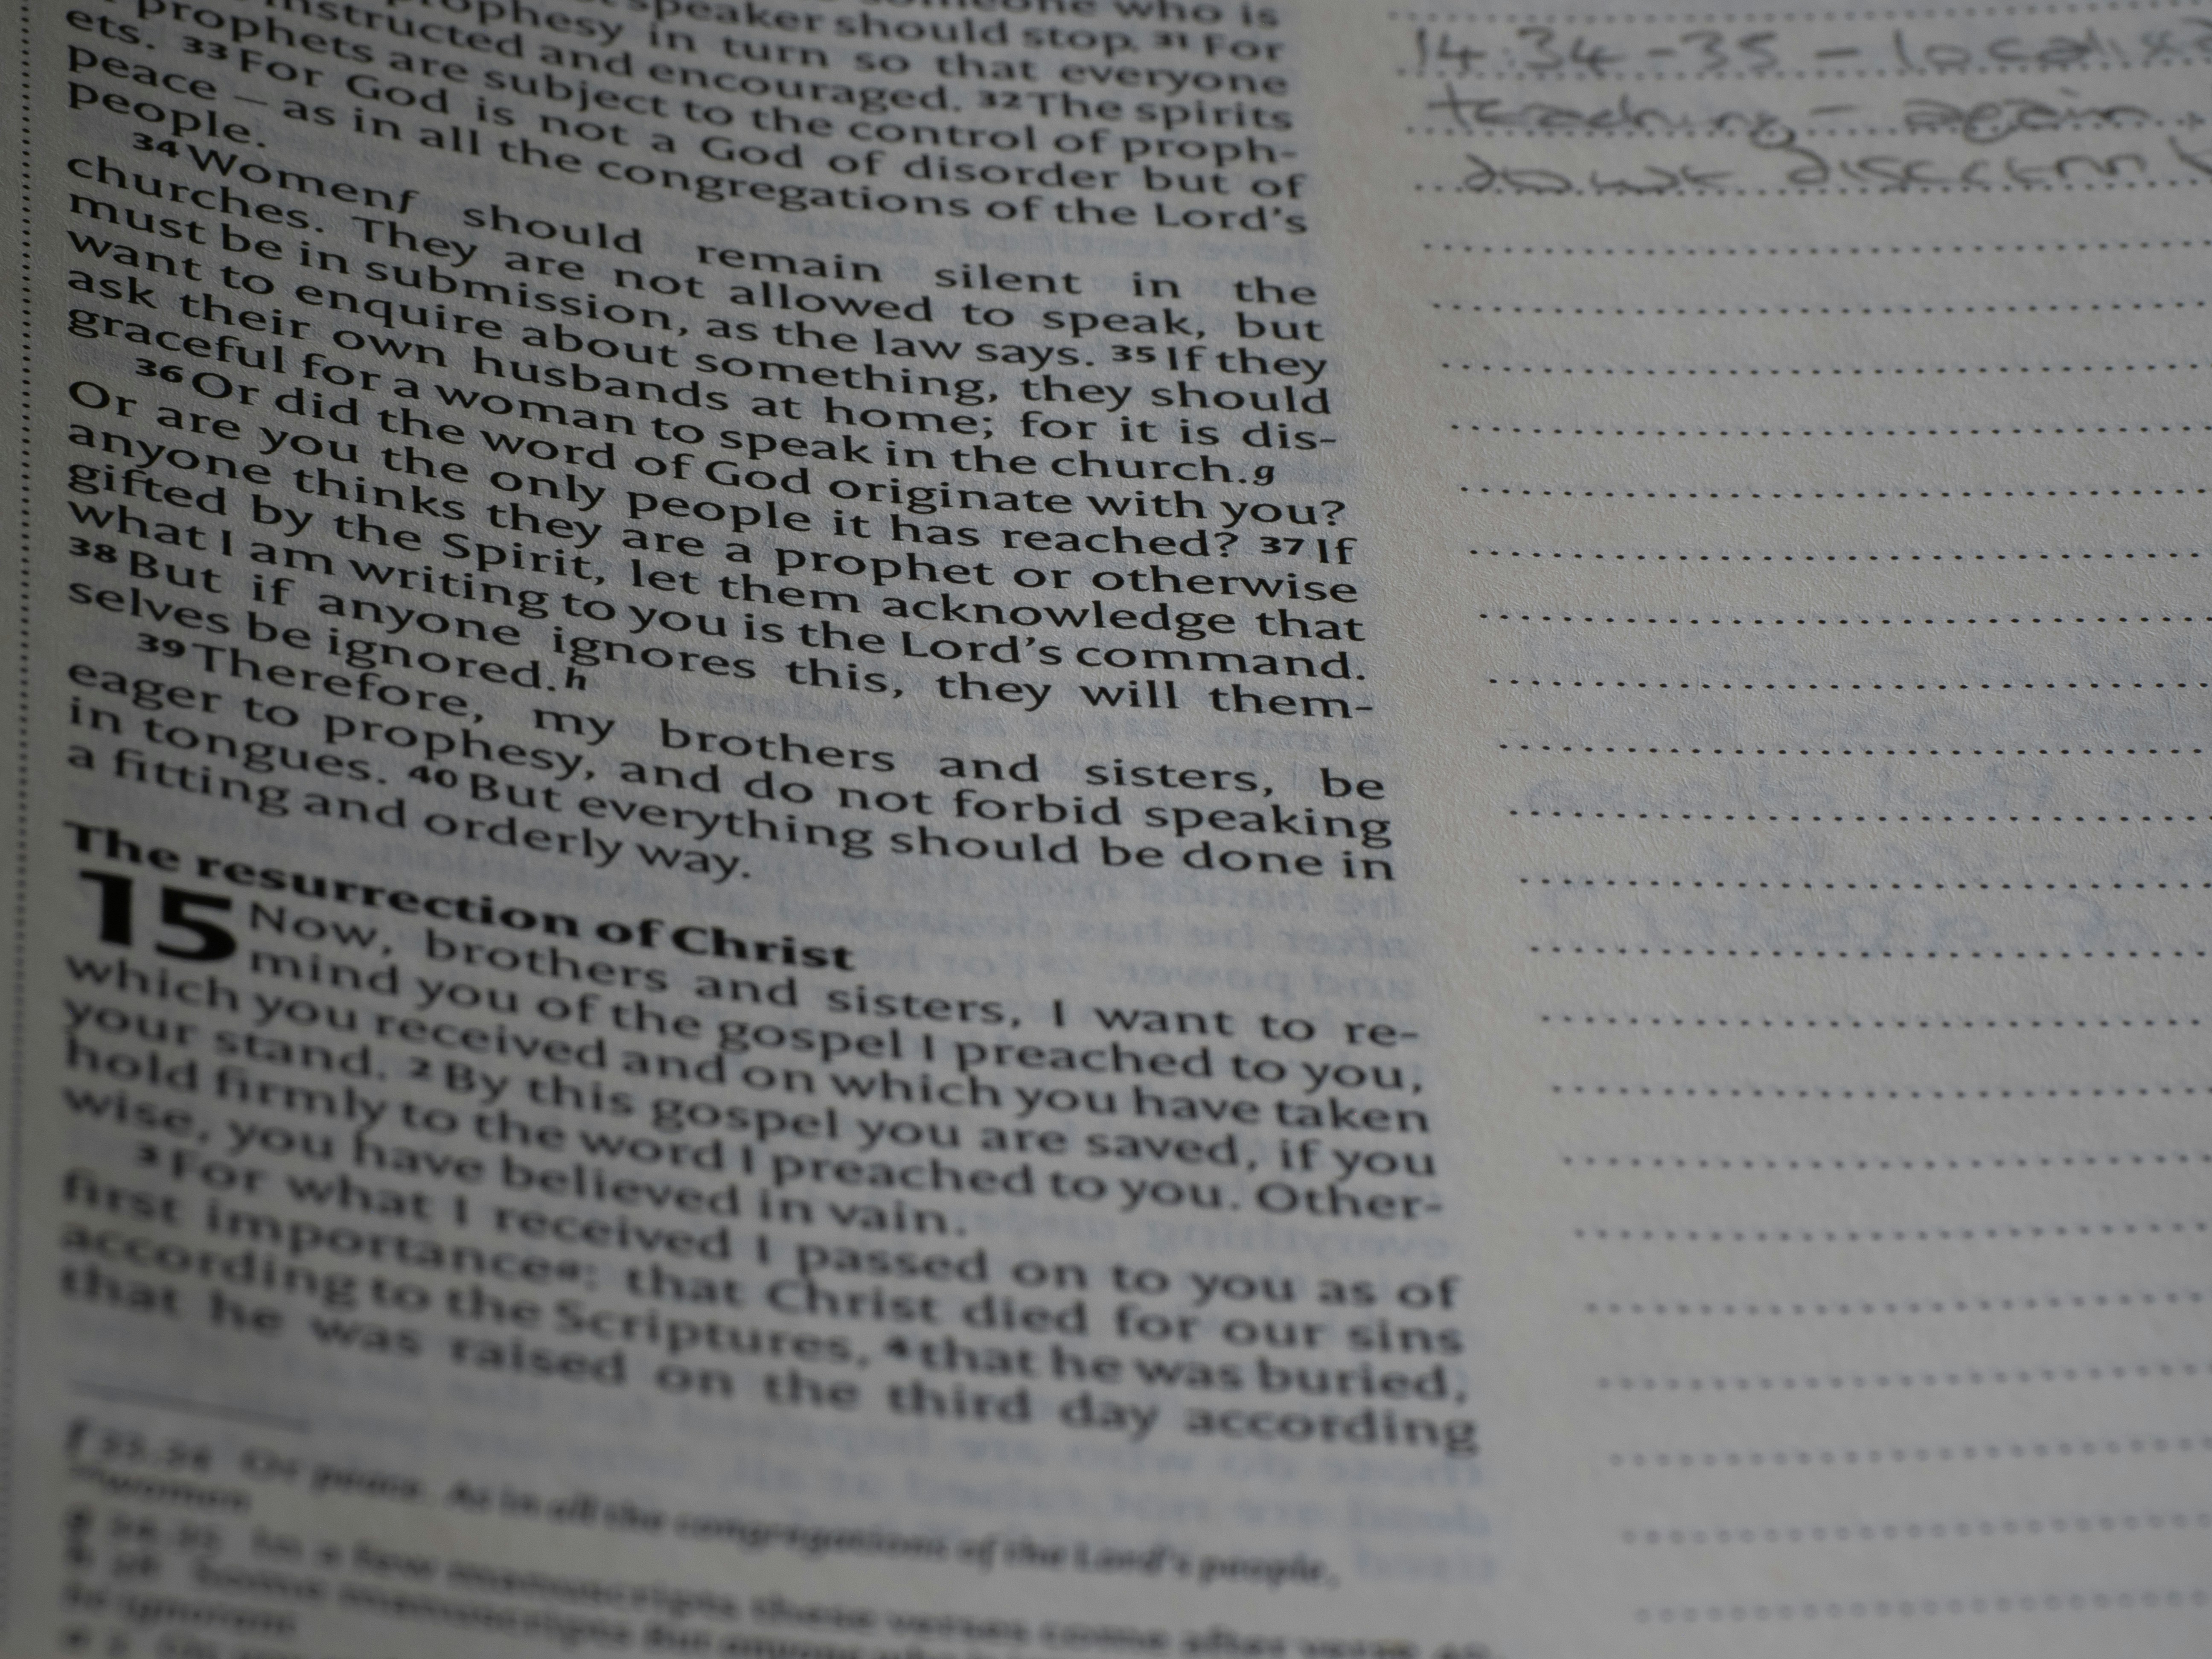 who is
speaker should stop. 31 For
prophesy in turn so that everyone
instructed and encouraged. 32 The spirits
prophets are subject to the control of proph-
ets. 33 For God is not a God of disorder but of
peace – as in all the congregations of the Lord's
people.
34 Women f should remain silent in the
churches. They are not allowed to speak, but
must be in submission, as the law says. 35 If they
want to enquire about something, they should
ask their own husbands at home; for it is dis-
graceful for a woman to speak in the church. g
36 Or did the word of God originate with you?
Or are you the only people it has reached? 37 If
anyone thinks they are a prophet or otherwise
gifted by the Spirit, let them acknowledge that
what I am writing to you is the Lord's command.
38 But if anyone ignores this, they will them-
selves be ignored. h
39 Therefore, my brothers and sisters, be
eager to prophesy, and do not forbid speaking
in tongues. 40 But everything should be done in
a fitting and orderly way.
The resurrection of Christ
15 Now, brothers and sisters, I want to re-
mind you of the gospel I preached to you,
which you received and on which you have taken
your stand. 2 By this gospel you are saved, if you
hold firmly to the word I preached to you. Other-
wise, you have believed in vain.
3 For what I received I passed on to you as of
first importance a: that Christ died for our sins
according to the Scriptures, 4 that he was buried,
that he was raised on the third day according
Or peace. As in all the congregations of the Lord's people,
women
In a few manuscripts these verses come after verse
Some manuscripts But anyone
14:34-35 –
teaching – again